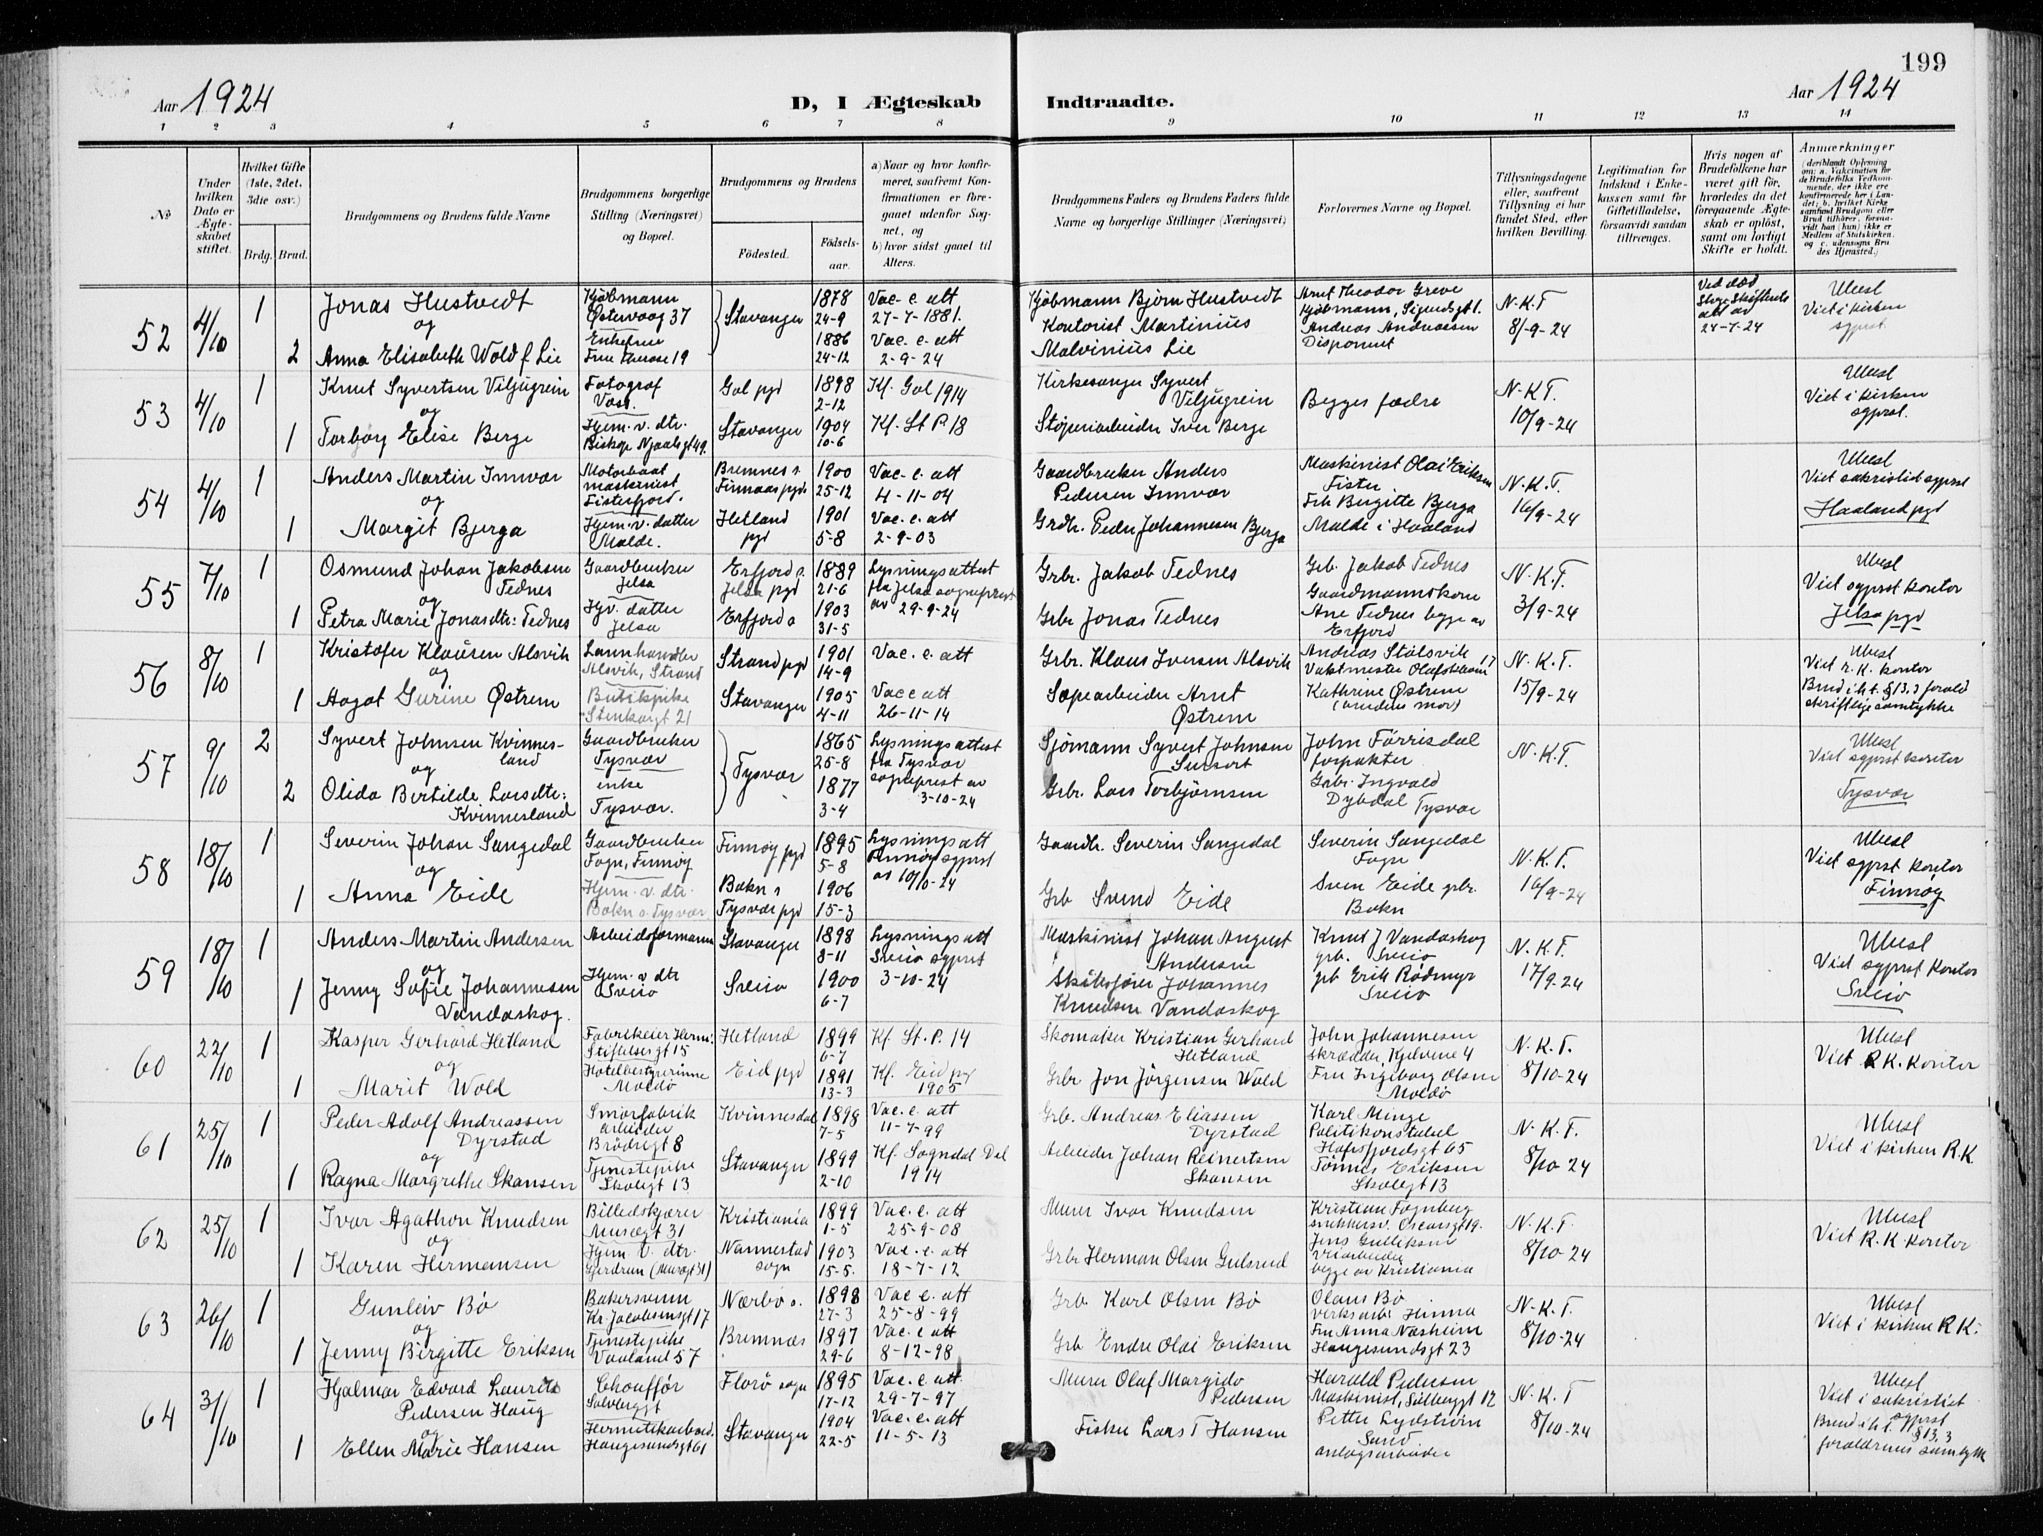 199
Aar 1924
D, I Ægteskab Indtraadte.
Aar 1924
1 2 3 4 5 6 7 8 9 10 11 12 13 14
No
Under hvilken Dato er Ægteskabet stiftet.
Hvilket Gifte (1ste, 2det, 3die osv.)
Brdg. Brud.
Brudgommens og Brudens fulde Navne
Brudgommens borgerlige Stilling (Næringsvei) og Bopæl.
Brudgommens og Brudens
Fødested.
Fødsels-aar.
a) Naar og hvor konfirmeret, saafremt Konfirmationen er foregaaet udenfor Sognet, og
b) hvor sidst gaaet til Alters.
Brudgommens Faders og Brudens Faders fulde Navne og borgerlige Stillinger (Næringsvei)
Forlovernes Navne og Bopæl.
Tillysningsdagene eller, saafremt Tillysning ei har fundet Sted, efter hvilken Bevilling.
Legitimation for Indskud i Enkekassen samt for Giftetilladelse, forsaavidt saadan tiltrænges.
Hvis nogen af Brudefolkene har været gift før, hvorledes da det foregaaende Ægteskab er opløst, samt om lovligt Skifte er holdt.
Anmærkninger
52 4/10 1 Jonas Hustvedt
Kjøbmann Østervaag 37
Stavanger 1878 24-9
Vac. e. att 27-7-1881.
Kjøbmann Bjørn Hustvedt
Arnt Theodor Greve
N.K.T. 8/9-24
Ubesl Viet i kirken sgprst.
og
2 Anna Elisabeth Wold f. Lie
Enkefrue
1886 24-12
Vac. e. att 2-9-24
Kontorist Martinius Malvinius Lie
Andreas Andreassen Disponent
24-7-24
53 4/10 1 Knut Syvertsen Viljugrein
Fotograf Voss.
Gol pgd 1898 2-12
Kf. Gol 1914
Kirkesanger Syvert Viljugrein
Begges fædre
N.K.T. 10/9-24
Ubesl Viet i kirken sgprst.
og
1 Torborg Elise Berge
Hjem. v. dtr.
Stavanger 1904 10-6
Kf. St P. 18
Støperiarbeider Iver Berge
54 4/10 1 Anders Martin Innvær
Motorbaat maskinist Fisterfjord.
Bremnes s. Finnaas pgd 1900 25-12
Vac. e. att 4-11-04
Gaardbruker Anders Pedersen Innvær
Maskinist Olai Eriksen Fister
N.K.T. 16/9-24
Ubesl Viet sakristiet sgprst
Haaland pgd
og
1 Margit Bjerga
Hjem. v. datter Malde.
Hetland pgd 1901 5-8
Vac. e. att 2-9-03
Grdbr. Peder Johannesen Bjerga
Frk Birgitte Bjerga Malde i Haaland
55 7/10 1 Osmund Johan Jakobsen Tednes
Gaardbruker Jelsa
Erfjord s. Jelsa pgd 1889 21-6
Lysningsattest fra Jelsa sogneprest av 29-9-24
Grbr. Jakob Tednes
Grb. Jakob Tednes
N.K.T. 3/9-24
Ubesl Viet sgprst kontor
Jelsa pgd
og
1 Petra Marie Jonasdtr: Tednes
Hjv. datter Jelsa
Erfjord s 1903 31-5
Grbr Jonas Tednes
Gaardmannskone Ane Tednes begge av Erfjord
56 8/10 1 Kristofer Klausen Alsvik
Alsvik, Strand
Strand pgd 1901 14-9
Vac. e. att
Grbr. Klaus Iversen Alsvik
N.K.T. 15/9-24
Ubesl Viet r. K. kontor
og
1 Aagot Gurine Østrem
Butikpike
Stavanger 1905 4-11
Vac e att 26-11-14
Sæpearbeider Arnt Østrem
Kathrine Østrem
Brud i h.t. § 13,3 skriftlige samtykke
57 9/10 2 Syvert Johnsen Kvinnesland
Gaardbruker Tysvær
Tysvær 1865 25-8
Lysningsattest fra Tysvær sogneprest av 3-10-24
Sjømann Syvert Johnsen
N.K.T.
Ubesl Viet sgprst kontor
Tysvær
og
2 Olida Bertilde Larsdtr: Kvinnesland
enke Tysvær.
1877 3-4
Grbr. Lars Torbjørnsen
Grbr. Ingvald Dybdal Tysvær
58 18/10 1 Severin Johan Sangedal
Gaardbruker Fogn, Finnøy
Finnøy pgd 1895 5-8
Lysningsatt Finnøy sgprst av 10/10-24
Gaardbr. Severin Sangedal
Severin Sangedal Fogn
N.K.T. 16/9-24
Ubesl Viet sgprst kontor
Finnøy
og
1 Anna Eide
Hjem. v. dtr. Bokn s. Tysvær
Bokn s Tysvær pgd 1906 15-3
Grb Svend Eide
Sven Eide grbr. Bokn
59 18/10 1 Anders Martin Andersen
Arbeidsformann
Stavanger 1898 8-11
Lysningsatt Sveio sgprst 3-10-24
Maskinist Johan August Andersen
Knut J Vandaskog grb. Sveio
N.K.T. 17/9-24
Ubesl Viet sgprst kontor
Sveio
og
1 Jenny Sofie Johannesen Vandaskog.
Hjem. v dtr Sveio
Sveio 1900 6-7
Johannes Knudsen Vandaskog
grb Erik Rødmyr Sveio
60 22/10 1 Kasper Gerhard Hetland
Stiftelsesgt 15
Hetland 1899 6-7
Kf. St. P. 14
Skomaker Kristian Gerhard Hetland
John Johannesen skrædder, Kjelvene 4
N.K.T. 8/10-24
Ubesl Viet R.K. kontor
og
1 Marit Wold
Hotelbestyrerinne Moldø
Eid pgd 1891 13-3
Kf. Eid pgd 1905
Grbr Jon Jørgensen Wold
Fru Ingeborg Olsen Moldø
61 25/10 1 Peder Adolf Andreassen Dyrstad
Smørfabrik arbeider Brødregt 8
Kvinnesdal 1898 7-5
Vac. e. att 11-7-99
Grb. Andreas Eliassen Dyrstad
Karl Minge Politikonstabel Hafrsfjordsgt 65
N.K.T. 8/10-24
Ubesl Viet i kirken R.K
og
1 Ragna Margrethe Skansen
Tjenestepike Skolegt 13
Stavanger 1899 2-10
Kf. Sogndal Dal 1914
Arbeider Johan Reinertsen Skansen
Tønnes Eriksen Skolegt 13
62 25/10 1 Ivar Agathon Knudsen
Billedskjærer Musegt 31
Kristiania 1899 1-5
Vac. e. att 25-9-08
Murer Ivar Knudsen
Kristian Fognberg snekkersv. Oscarsgt 19.
N.K.T 8/10-24
Ubesl Viet R.K kontor
og
1 Karen Hermansen
Hjem. v. dtr. Gjerdrum (Musegt 31)
Nannestad sogn 1903 15-5.
Vac. e. att 18-7-12
Grbr Herman Olsen Gulsrud
Jens Gulliksen begge av Kristiania
63 26/10 1 Gunleiv Bø
Bakersvenn Kr. Jacobsensgt 17
Nærbø s. 1898 27-3
Vac e. att 25-8-99
Grb. Karl Olsen Bø
Olaus Bø Hinna
N.K.T. 8/10-24
Ubesl Viet i kirken R K.
og
1 Jenny Birgitte Eriksen
Tjenestepike Vaaland 57
Bremnæs 1897 29-6
Vac. e att 8-12-98
Grb Endre Olai Eriksen
Fru Anna Næsheim Haugesundsgt 23
64 31/10 1 Hjalmar Edvard Laurits Pedersen Haug
Chouffør Sølvberggt
Florø sogn 1895 17-12
Vac. e. att 29-7-97
Murer Olaf Margido Pedersen
Harald Pedersen Maskinist, Sølvberggt 12
N.K.T 8/10-24
Ubesl Viet i sakristiet sgprst
og
1 Ellen Marie Hansen
Haugesundsgt 61
Stavanger 1904 22-5
Vac. e. att 11-5-13
Fisker Lars T Hansen
Petter Lydström Sund anlægsarbeider
Brud i h.t. § 13,3 forældrenes samtykke